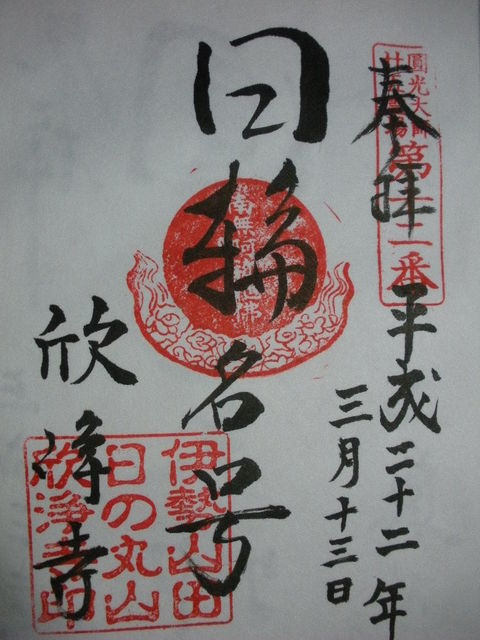 奉拝
圓光大師
廿五霊場
第十二番
平成二十二年
三月十三日
日輪名号
南無阿弥陀佛
欣浄寺
伊勢山田
日の丸山
欣浄寺印